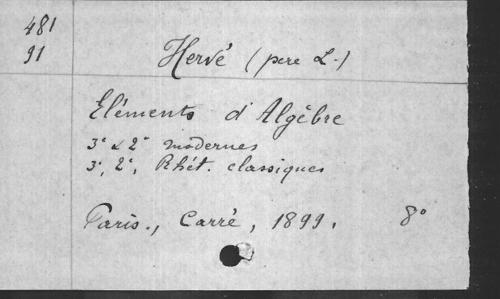 481
91
Hervé (pere L.)
Eléments d'Algèbre
3e & 2e modernes
3e, 2e, Rhét. classiques
Paris., Carré, 1899. 8°